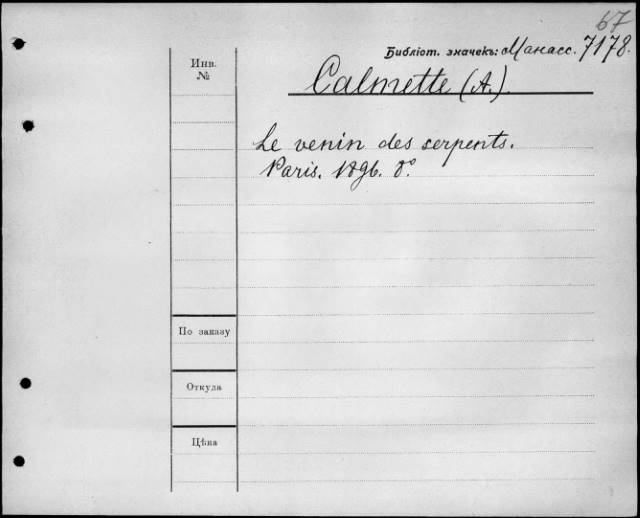 67
Библіот. значекъ: Манасс. 7178.
Инв.
№
Calmette (A.).
Le venin des serpents.
Paris. 1896. 8º.
По заказу
Откуда
Цѣна